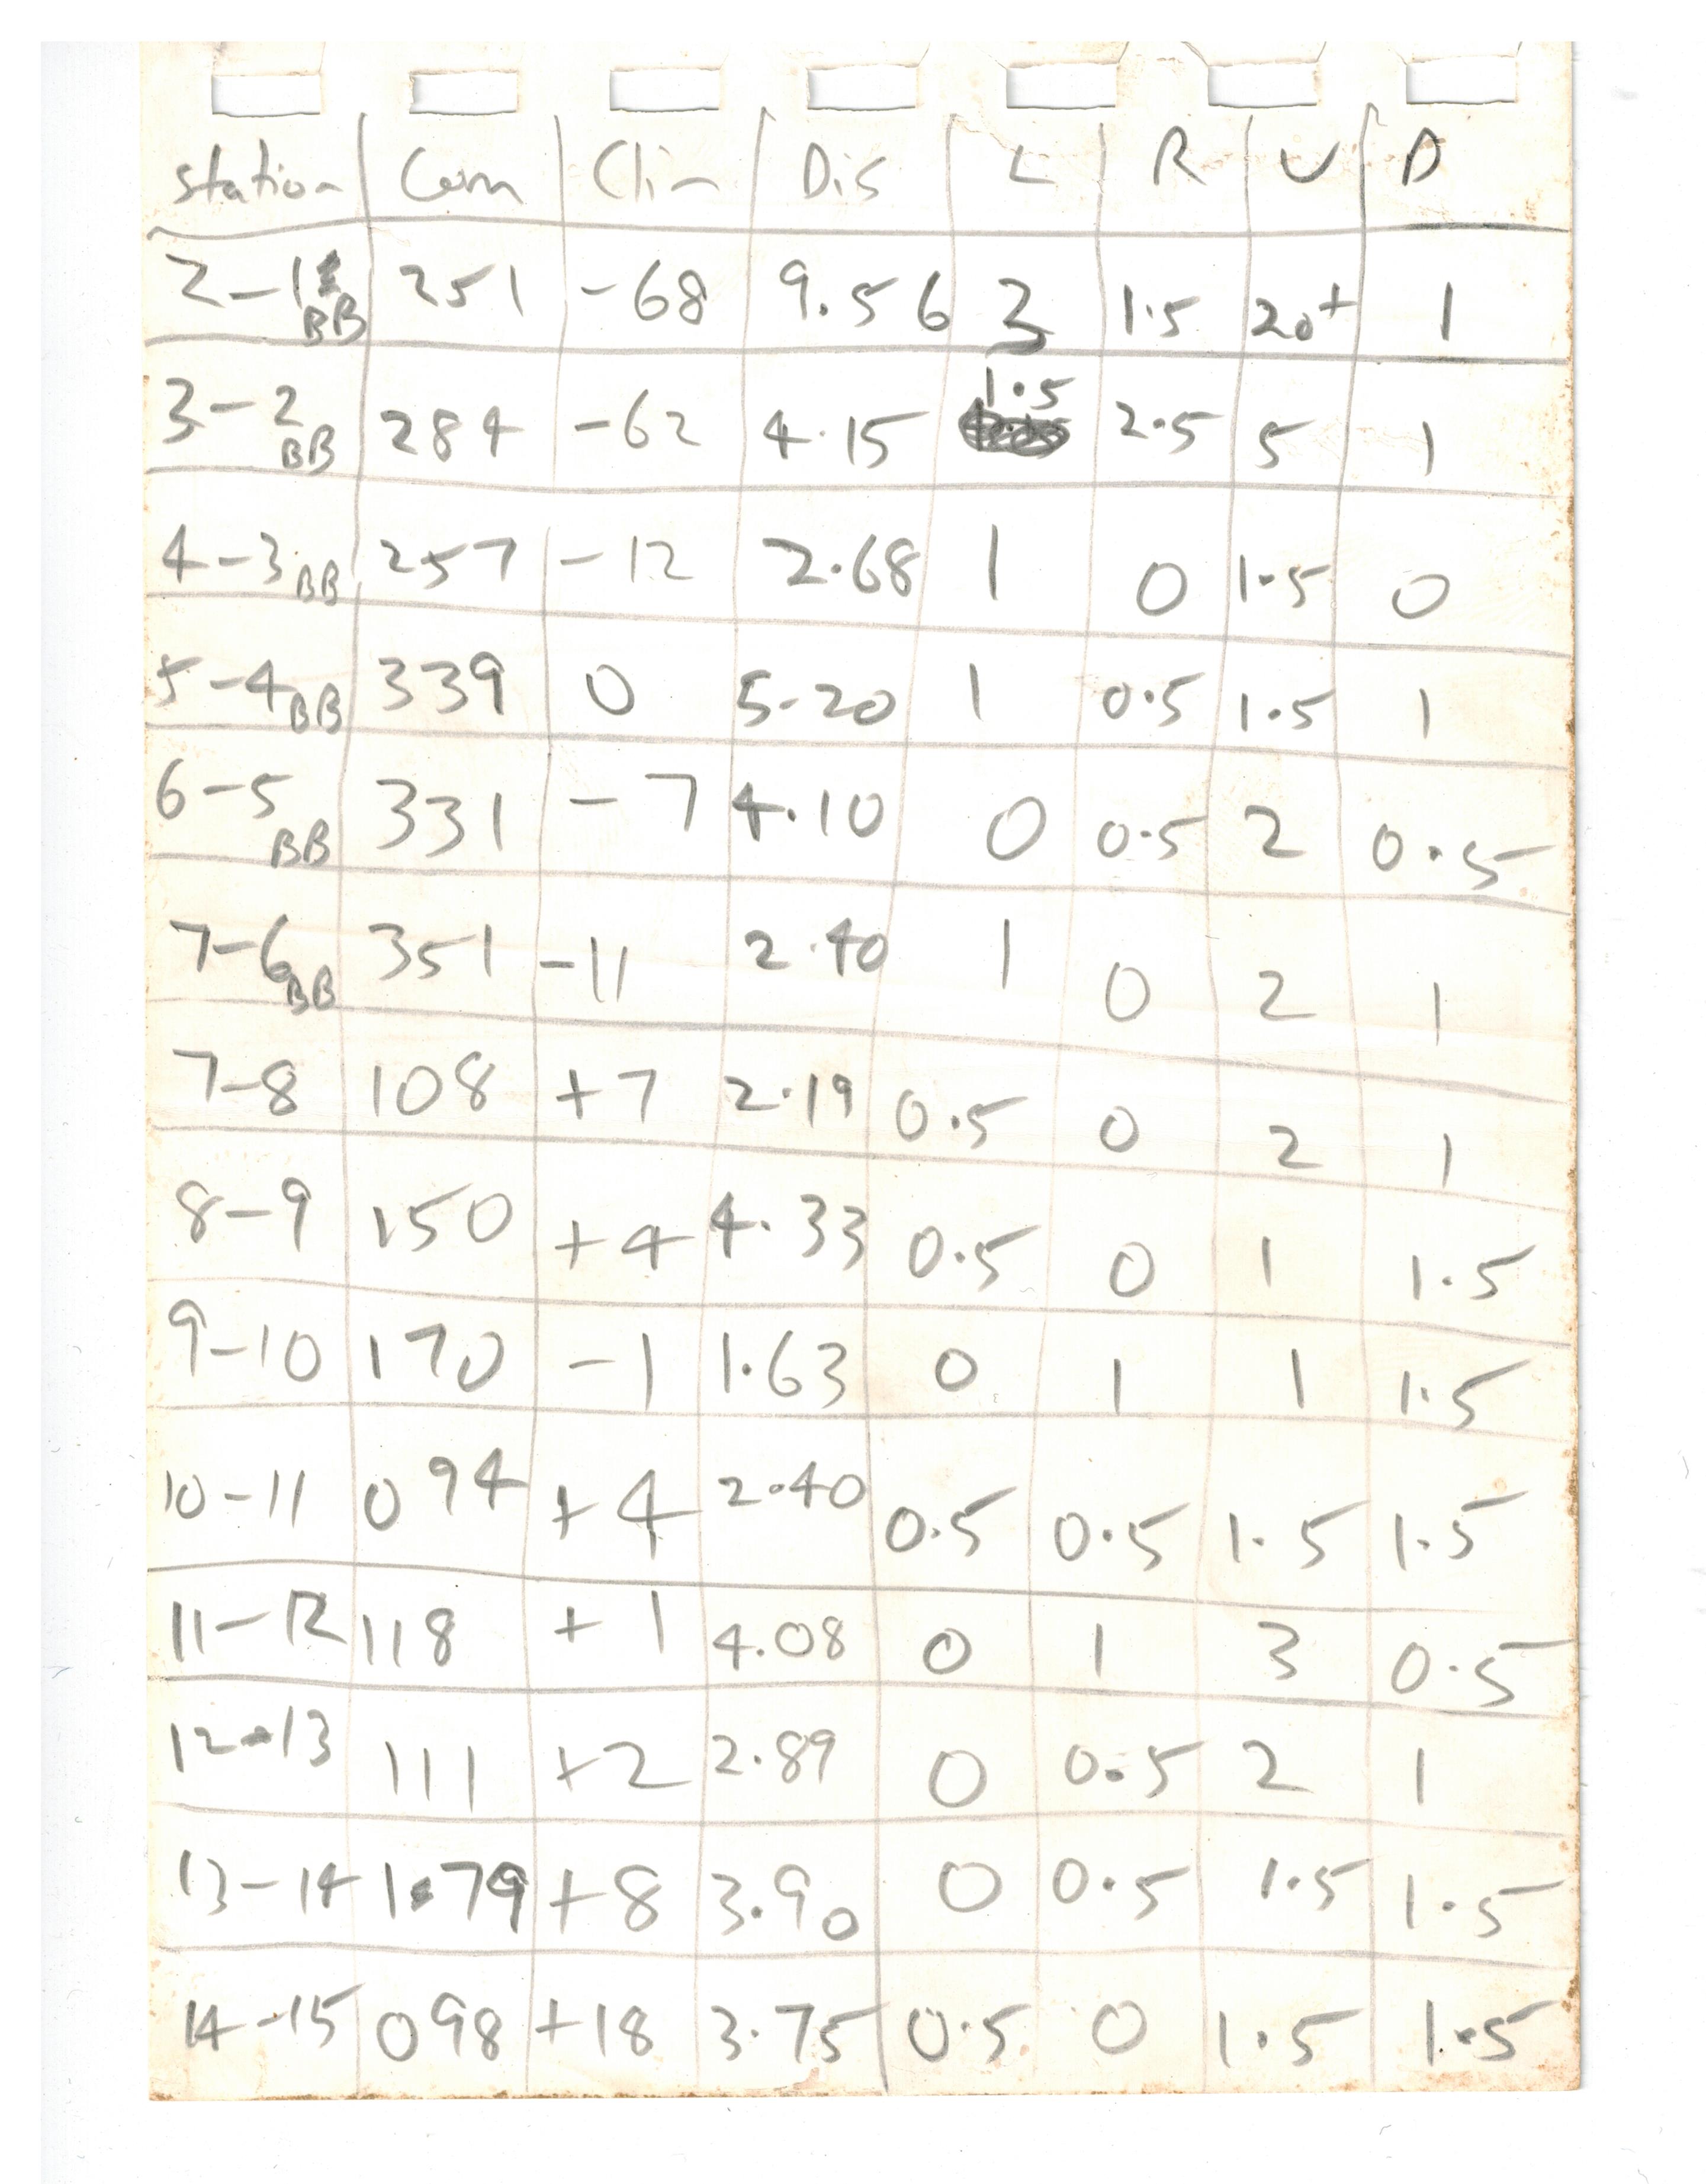 station Com Clin Dis L R U D
2-1BB 251 -68 9.56 3 1.5 20+ 1
3-2BB 284 -62 4.15 1.5 2.5 5 1
4-3BB 257 -12 2.68 1 0 1.5 0
5-4BB 339 0 5.20 1 0.5 1.5 1
6-5BB 331 -7 4.10 0 0.5 2 0.5
7-6BB 351 -11 2.40 1 0 2 1
7-8 108 +7 2.19 0.5 0 2 1
8-9 150 +4 4.33 0.5 0 1 1.5
9-10 170 -1 1.63 0 1 1 1.5
10-11 094 +4 2.40 0.5 0.5 1.5 1.5
11-12 118 +1 4.08 0 1 3 0.5
12-13 111 +2 2.89 0 0.5 2 1
13-14 179 +8 3.90 0 0.5 1.5 1.5
14-15 098 +18 3.75 0.5 0 1.5 1.5